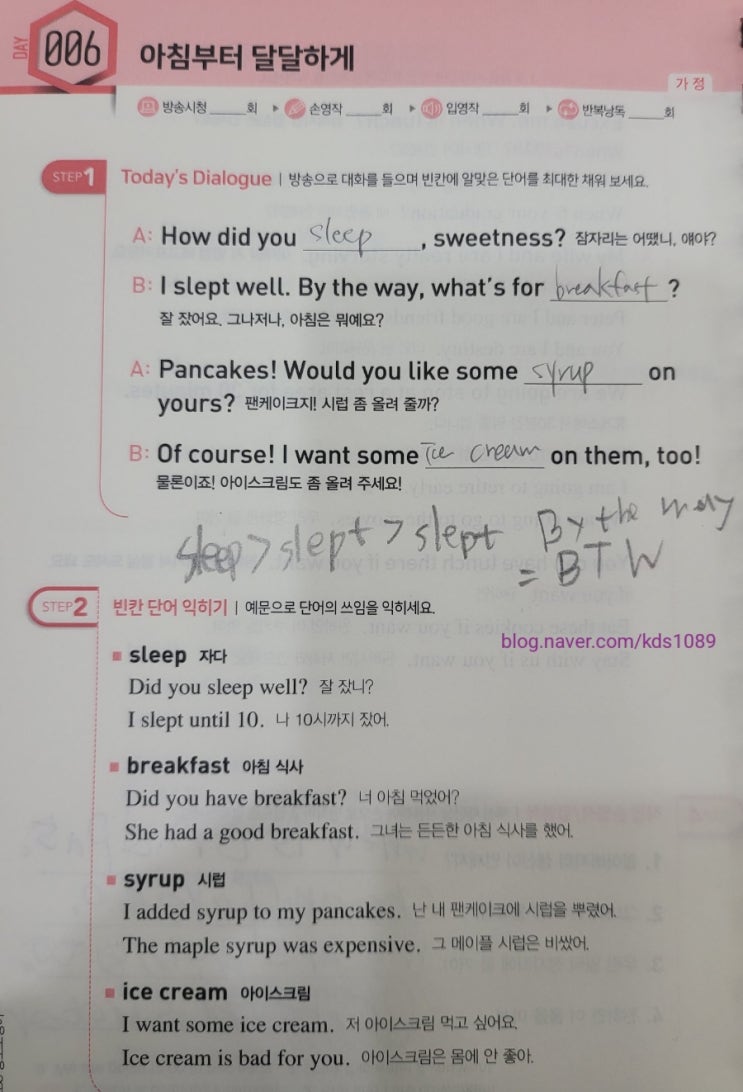 DAY 006 아침부터 달달하게
가정
방송시청 _____회 ▶ 손영작 _____회 ▶ 입영작 _____회 ▶ 반복낭독 _____회
STEP 1 Today's Dialogue | 방송으로 대화를 들으며 빈칸에 알맞은 단어를 최대한 채워 보세요.
A: How did you sleep, sweetness? 잠자리는 어땠니, 얘야?
B: I slept well. By the way, what's for breakfast?
잘 잤어요. 그나저나, 아침은 뭐예요?
A: Pancakes! Would you like some syrup on
yours? 팬케이크지! 시럽 좀 올려 줄까?
B: Of course! I want some ice cream on them, too!
물론이죠! 아이스크림도 좀 올려 주세요!
sleep > slept > slept By the way
= BTW
STEP 2 빈칸 단어 익히기 | 예문으로 단어의 쓰임을 익히세요.
blog.naver.com/kds1089
■ sleep 자다
Did you sleep well? 잘 잤니?
I slept until 10. 나 10시까지 잤어.
■ breakfast 아침 식사
Did you have breakfast? 너 아침 먹었어?
She had a good breakfast. 그녀는 든든한 아침 식사를 했어.
■ syrup 시럽
I added syrup to my pancakes. 난 내 팬케이크에 시럽을 뿌렸어.
The maple syrup was expensive. 그 메이플 시럽은 비쌌어.
■ ice cream 아이스크림
I want some ice cream. 저 아이스크림 먹고 싶어요.
Ice cream is bad for you. 아이스크림은 몸에 안 좋아.